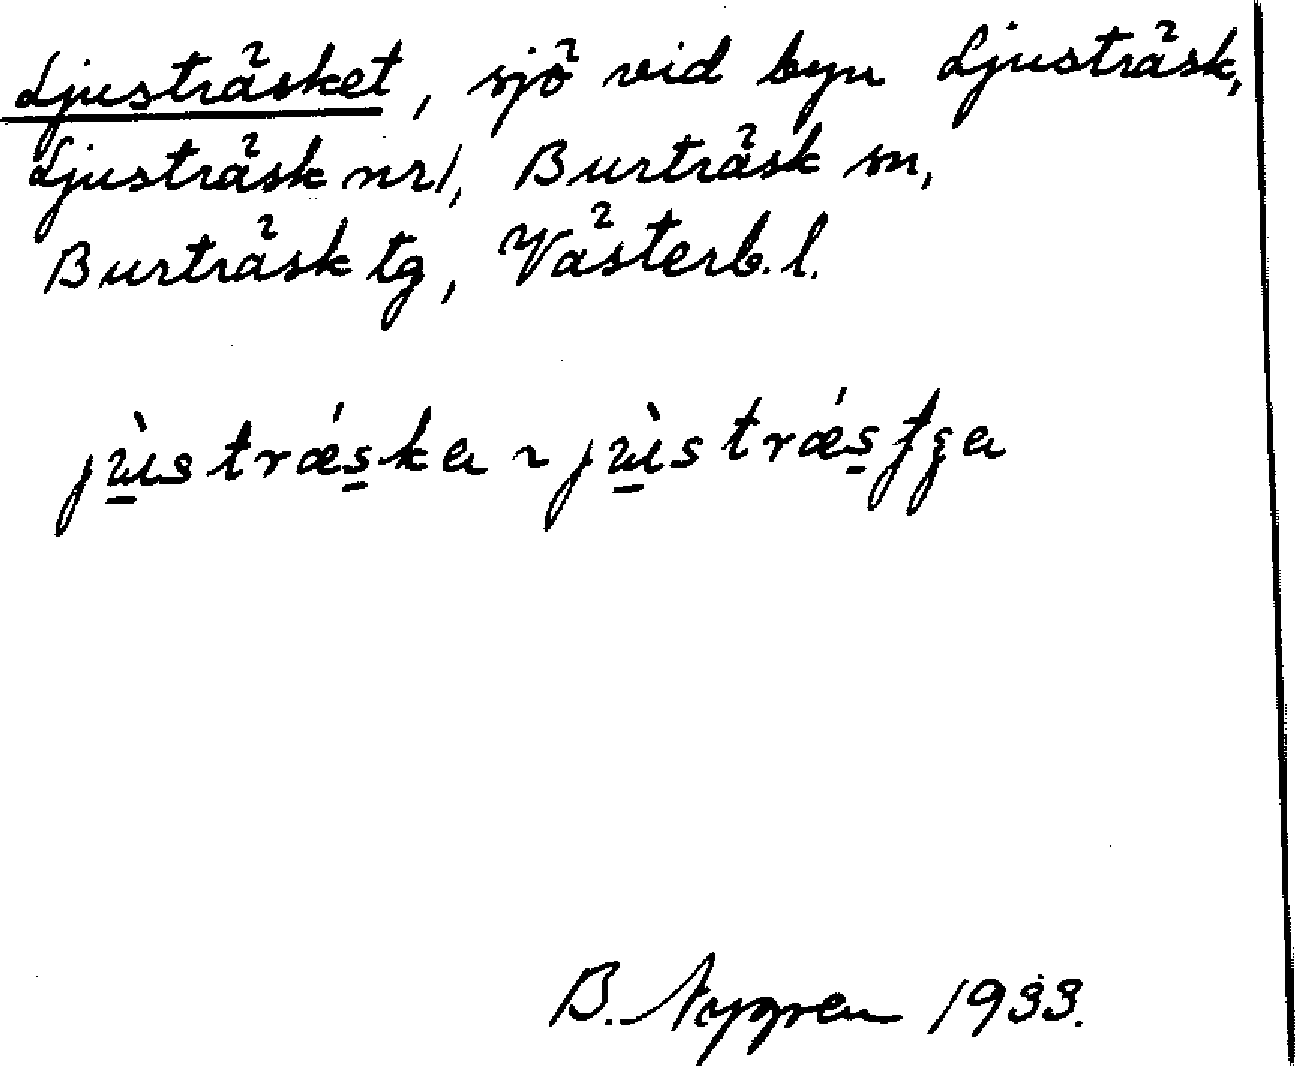 Ljusträsket, sjö vid byn Ljusträsk,
Ljusträsk nr 1, Burträsk sn,
Burträsk tg, Västerb. l.
jùstrǽska ~ jùstrǽsʃʒa
B. Nygren 1933.